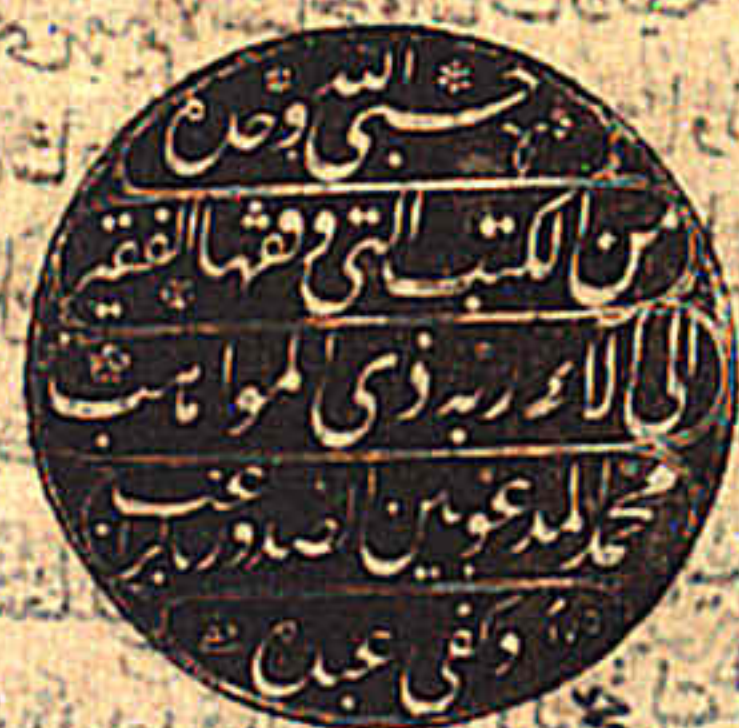 حسبى الله وحده
من الكتب التى وقفها الفقير
الى الاء ربه ذى المواهب
محمد المدعو بين الصدور براغب
وكفى عبده